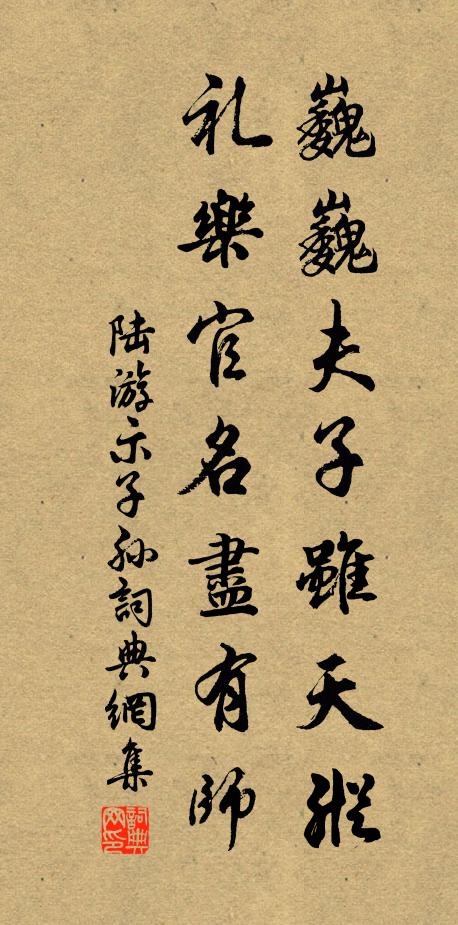 巍巍夫子雖天縱
礼樂官名盡有師
陆游示子孙詞典網集
詞典网印